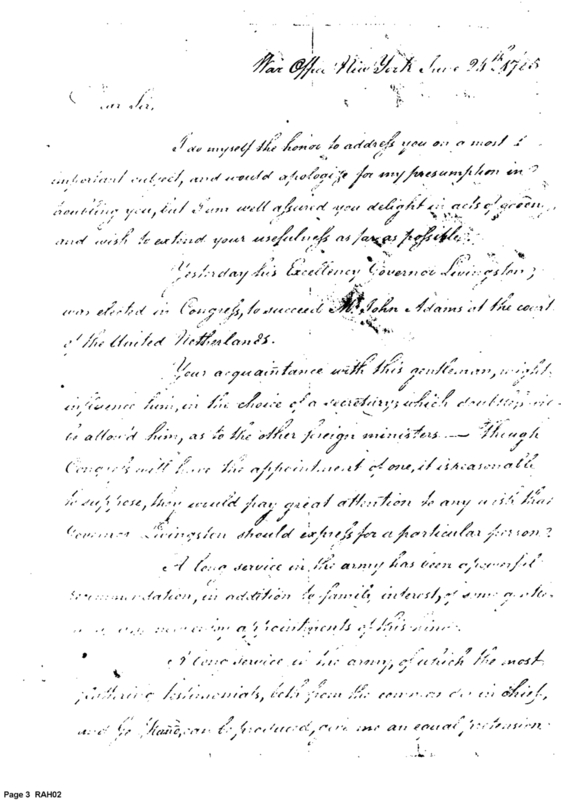 War Office New York June 24th 1785
Dear Sir,
I do myself the honor to address you on a most
important subject, and would apologize for my presumption in
troubling you, but I am well assured you delight in acts of
and wish to extend your usefulness as far as possible.
Yesterday his Excellency Governor Livingston,
was elected in Congress, to succeed Mr. John Adams at the court
of the United Netherlands.
Your acquaintance with this gentleman, might
influence him, in the choice of a secretary, which
is allow'd him, as to the other foreign ministers — Though
Congress will have the appointment of one, it is reasonable
to suppose, they would pay great attention to any wish that
Governor Livingston should express for a particular person.
A long service in the army has been a powerful
recommendation, in addition to family interest, of some
appointments of this
A long service in the army, of which the most
flattering testimonials, both from the commander in chief,
and can be produced, give me an equal pretension
Page 3 RAH02